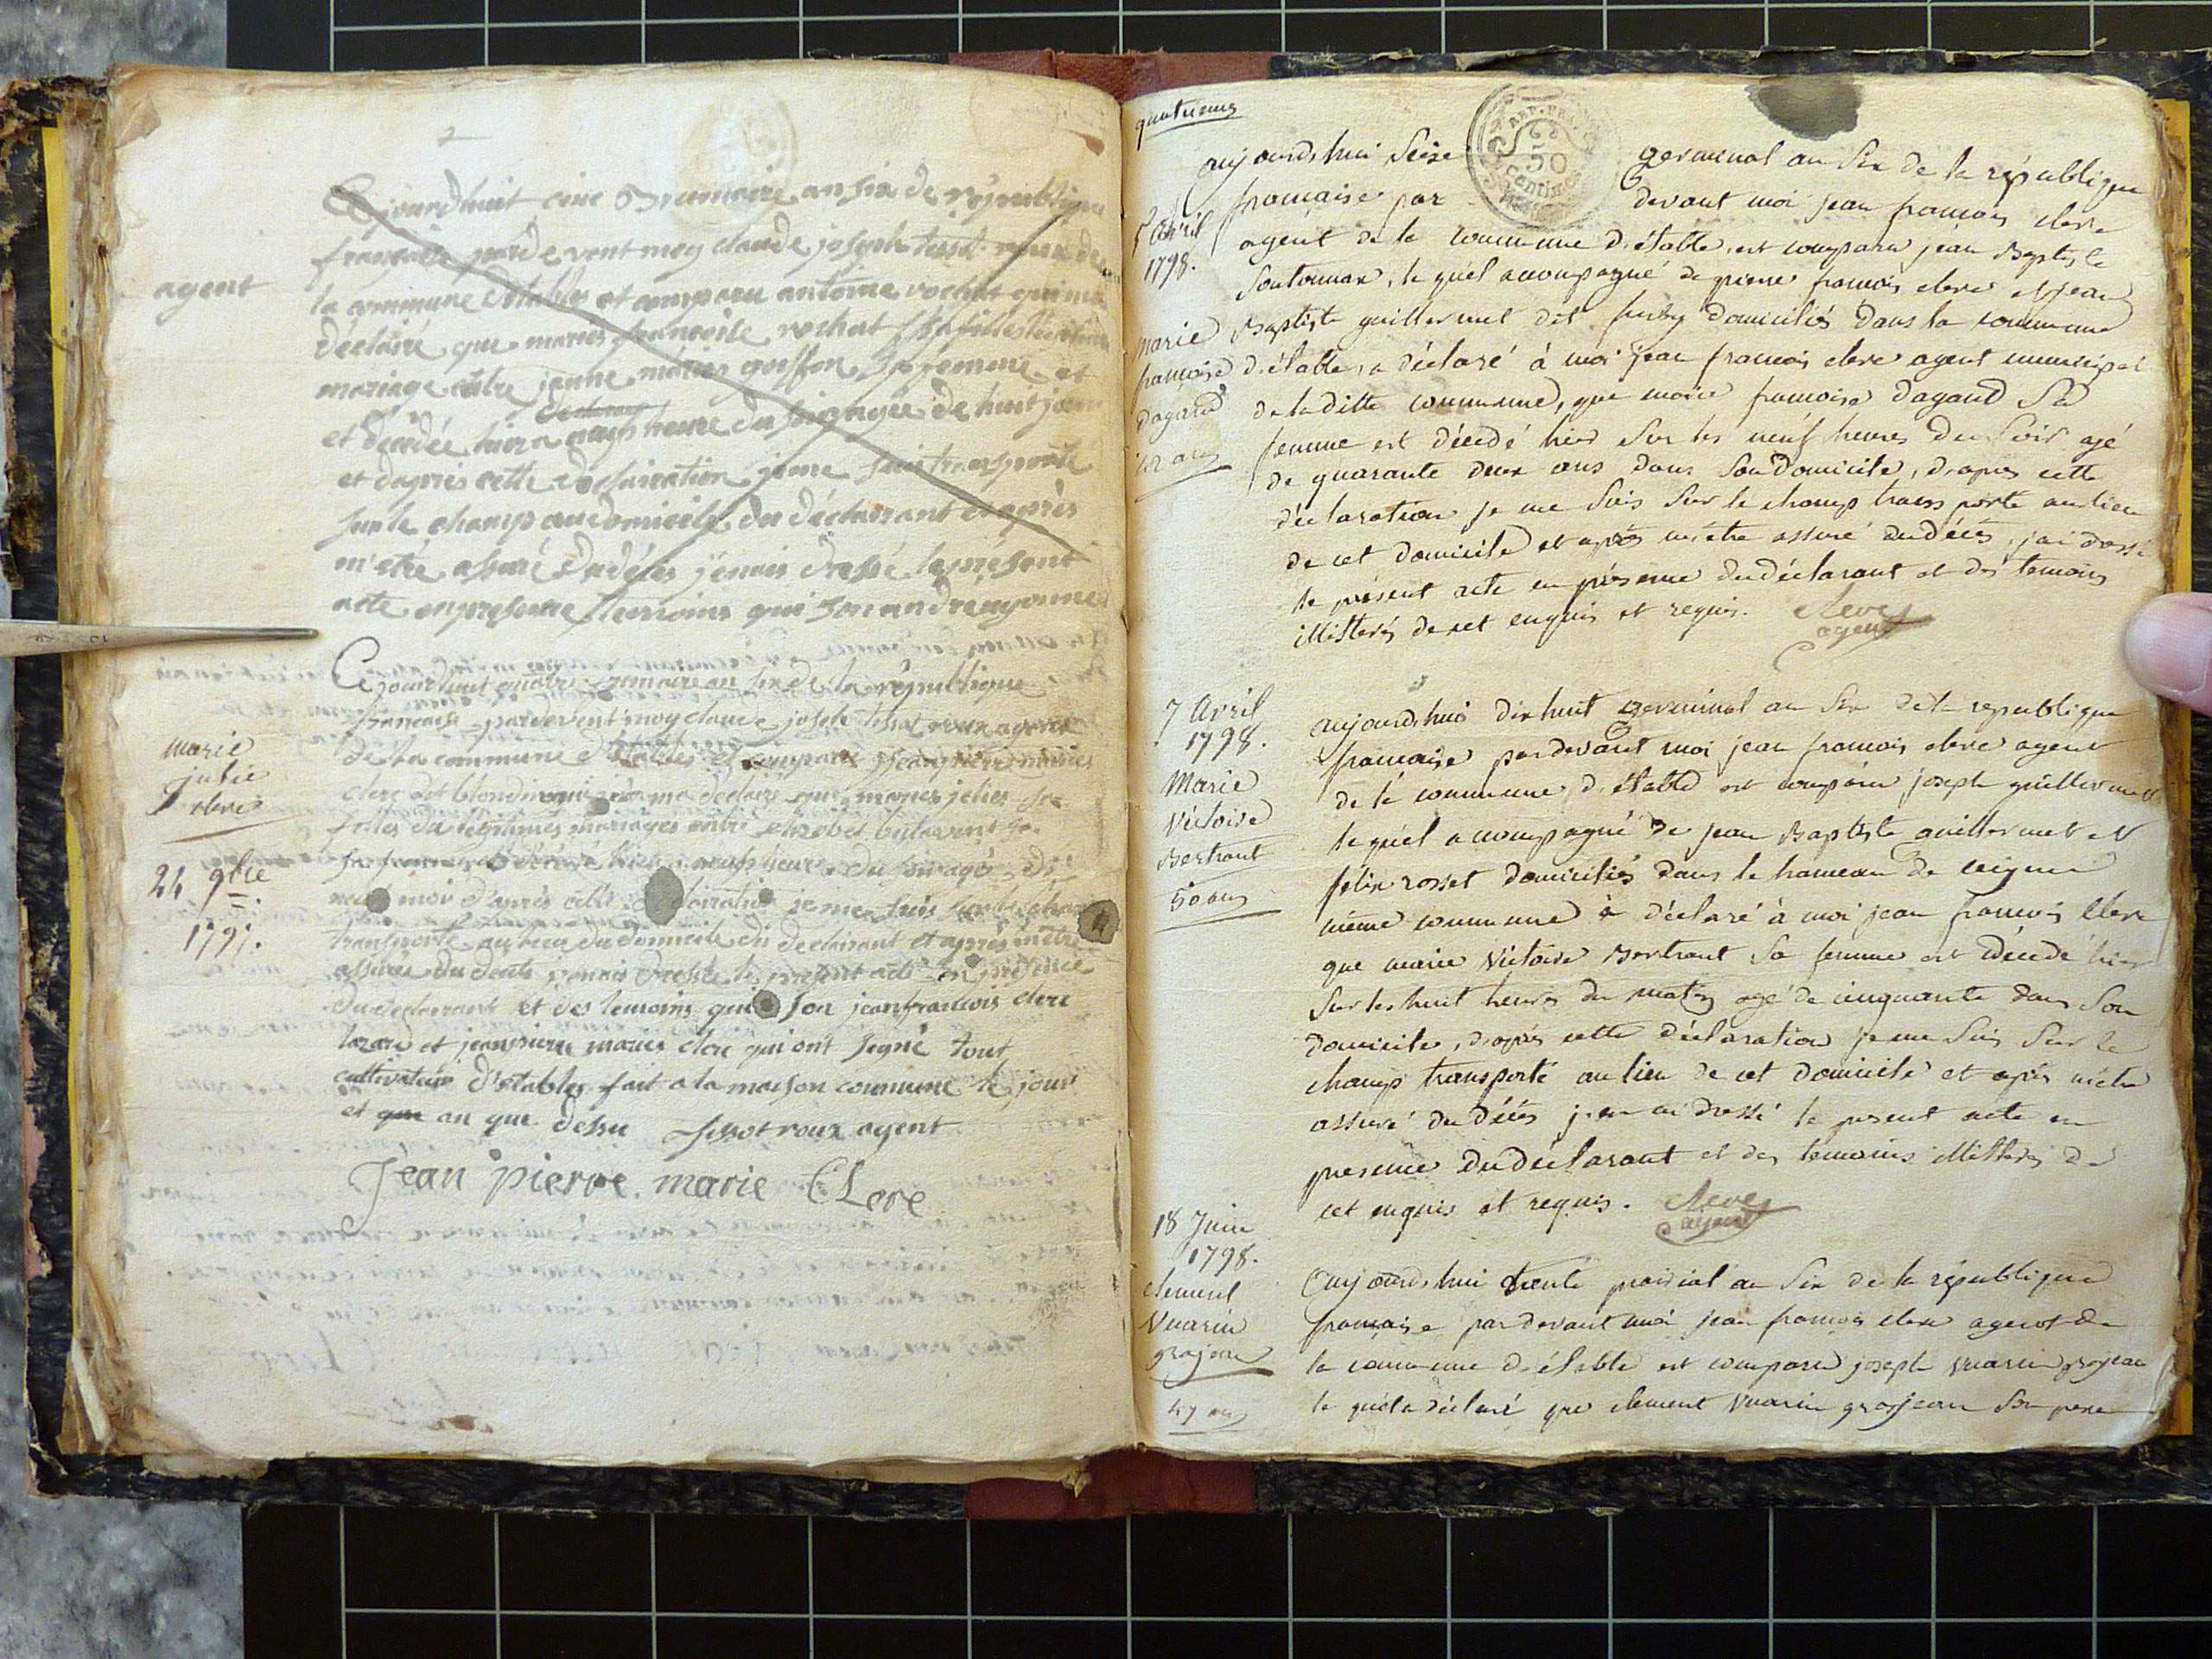 agent
Cejourdhuit cinc Brumaire an six de republique
francaise pardevent moy claude joseph tissot roux de
la commune d'Etables et comparu antoine vochat qui ma
déclairé que maries francoise vochat sa fillies
mariage entre jeanne maries goiffon sa femme et
et decedée hier a neufs heure du soir agée de huit jour
et dapries cette declairation jeme suis transporté
sur le champ au domicile du déclairant et après
m'etre assuré du décès j'enais dressé le présent
acte enpresence temoins qui son andré
marie
julie
clerc
24 9bre
1797.
Cejourdhuit quatre frimaire an six de la république
francaise pardevent moy claude joseph tissot roux agent
de la commune d'Etables et comparu jeanpierre maries
clerc dit blondin qui ma declairé que maries julies sa
filles du legitimes mariages entre
sa femme decedé hier a neufs heure du soir agée de
neuf mois d'après cette declairation jeme suis sur le champ
transporté au lieu du domicile du declairant et après m'etre
assurés du decès j'enais dressé le present acte en presence
du declairant et des temoins qui son jeanfrancois clerc
lazare et jeanpierre maries clerc qui ont signé tout
cultivateur d'Etables fait a la maison commune le jour
et que an que dessu tissot roux agent
Jean pierre marie CLerc
quatrieme
5 Avril
1798.
marie
françoise
dagand
42 ans
REP. FRA.
50
centimes
aujourdhui seize germinal an six de la république
française par devant moi jean françois clerc
agent de la commune d'étable, est comparu jean Baptiste
Soutonnax, le quel accompagné de pierre françois clerc et jean
Baptiste guillermet dit domiciliés dans la commune
d'étable, a déclaré à moi jean françois clerc agent municipal
de la ditte commune, que marie francoise dagand sa
femme est décedé hier sur les neuf heures du soir agé
de quarante deux ans dans son domicile, d'apres cette
déclaration je me suis sur le champ transporté au lieu
de cet domicile et après m'être assuré du décès, j'ai dressé
le présent acte en présence du déclarant et des temoins
illitérés de cet enquis et requis. clerc
agent
7 Avril
1798.
Marie
Victoire
Bertrant
50 ans
aujourdhui dix huit germinal an six de la republique
française par devant moi jean francois clerc agent
de la commune d'étable est comparu joseph guillermet
le quel accompagné de jean Baptiste guillermet et
felix rosset domiciliés dans le hameau de ceignes
même commune à déclaré à moi jean francois clerc
que marie Victoire Bertrant sa femme est décedé hier
sur les huit heures du matin agé de cinquante dans son
domicile, d'après cette déclaration je me suis sur le
champ transporté au lieu de cet domicile et après m'être
assuré du décès j'en ai dressé le present acte en
presence du déclarant et des temoins illittérés de
cet enquis et requis. clerc
agent
18 Juin
1798.
clement
Vuarin
grojean
47 ans
aujourdhui trente prairial an six de la république
française par devant moi jean françois clerc agent de
la commune d'étable est comparu joseph vuarin grojean
le quel a déclaré que clement vuarin grosjean son pere